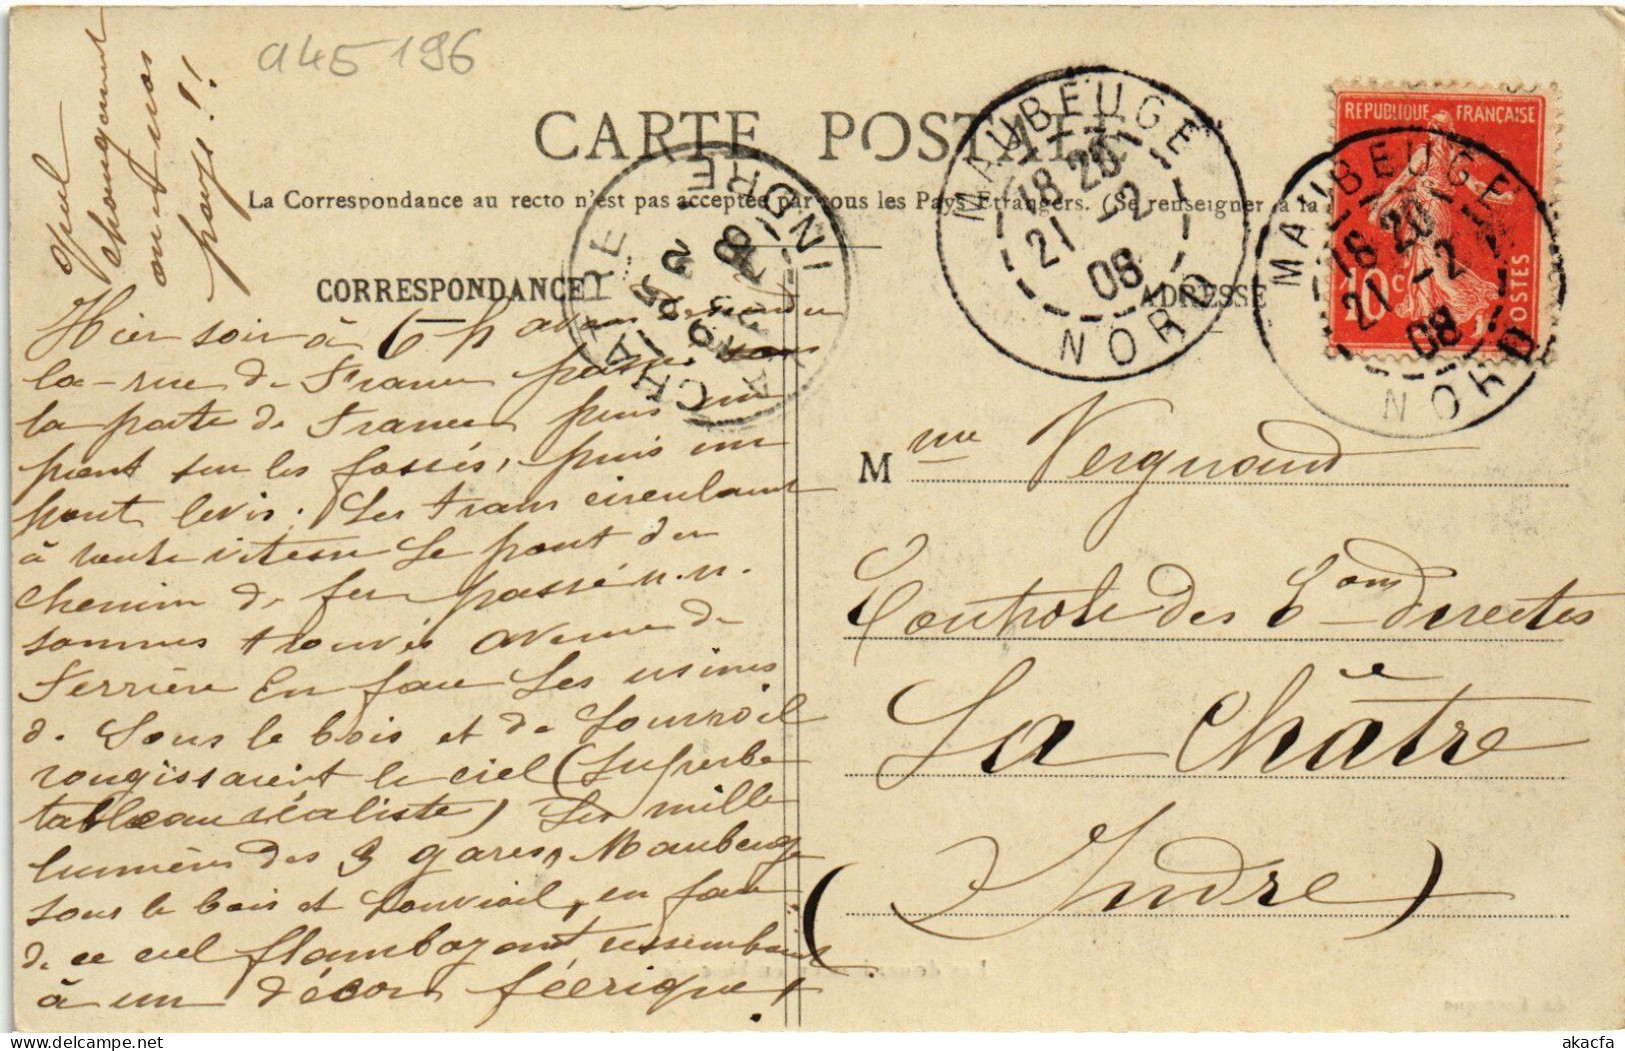 a45196
CARTE POSTALE
La Correspondance au recto n'est pas acceptée par tous les Pays Etrangers. (Se renseigner à la
CORRESPONDANCE
ADRESSE
MAUBEUGE
18 20
21 - 2
08
NORD
REPUBLIQUE FRANÇAISE
10c
POSTES
MAUBEUGE
18 20
21 - 2
08
NORD
LA CHATRE
INDRE
Quel
changement
pays!!
Hier soir à 6 h avons
la rue de France passé sous
la porte de France puis un
pont sur les fossés, puis un
pont levis. Les trams circulant
à toute vitesse le pont du
chemin de fer passé n.n.
sommes trouvés avenue de
Ferrière En face les usines
de Sous le bois et de Louvroil
rougissaient le ciel (superbe
tableau réaliste) Les mille
lumières des 3 gares, Maubeuge
sous le bois et Louvroil, en face
de ce ciel flamboyant ressemblait
à un décor féerique!
Mme Vergnaud
Controle des Com directes
La Châtre
(Indre)
akacfa